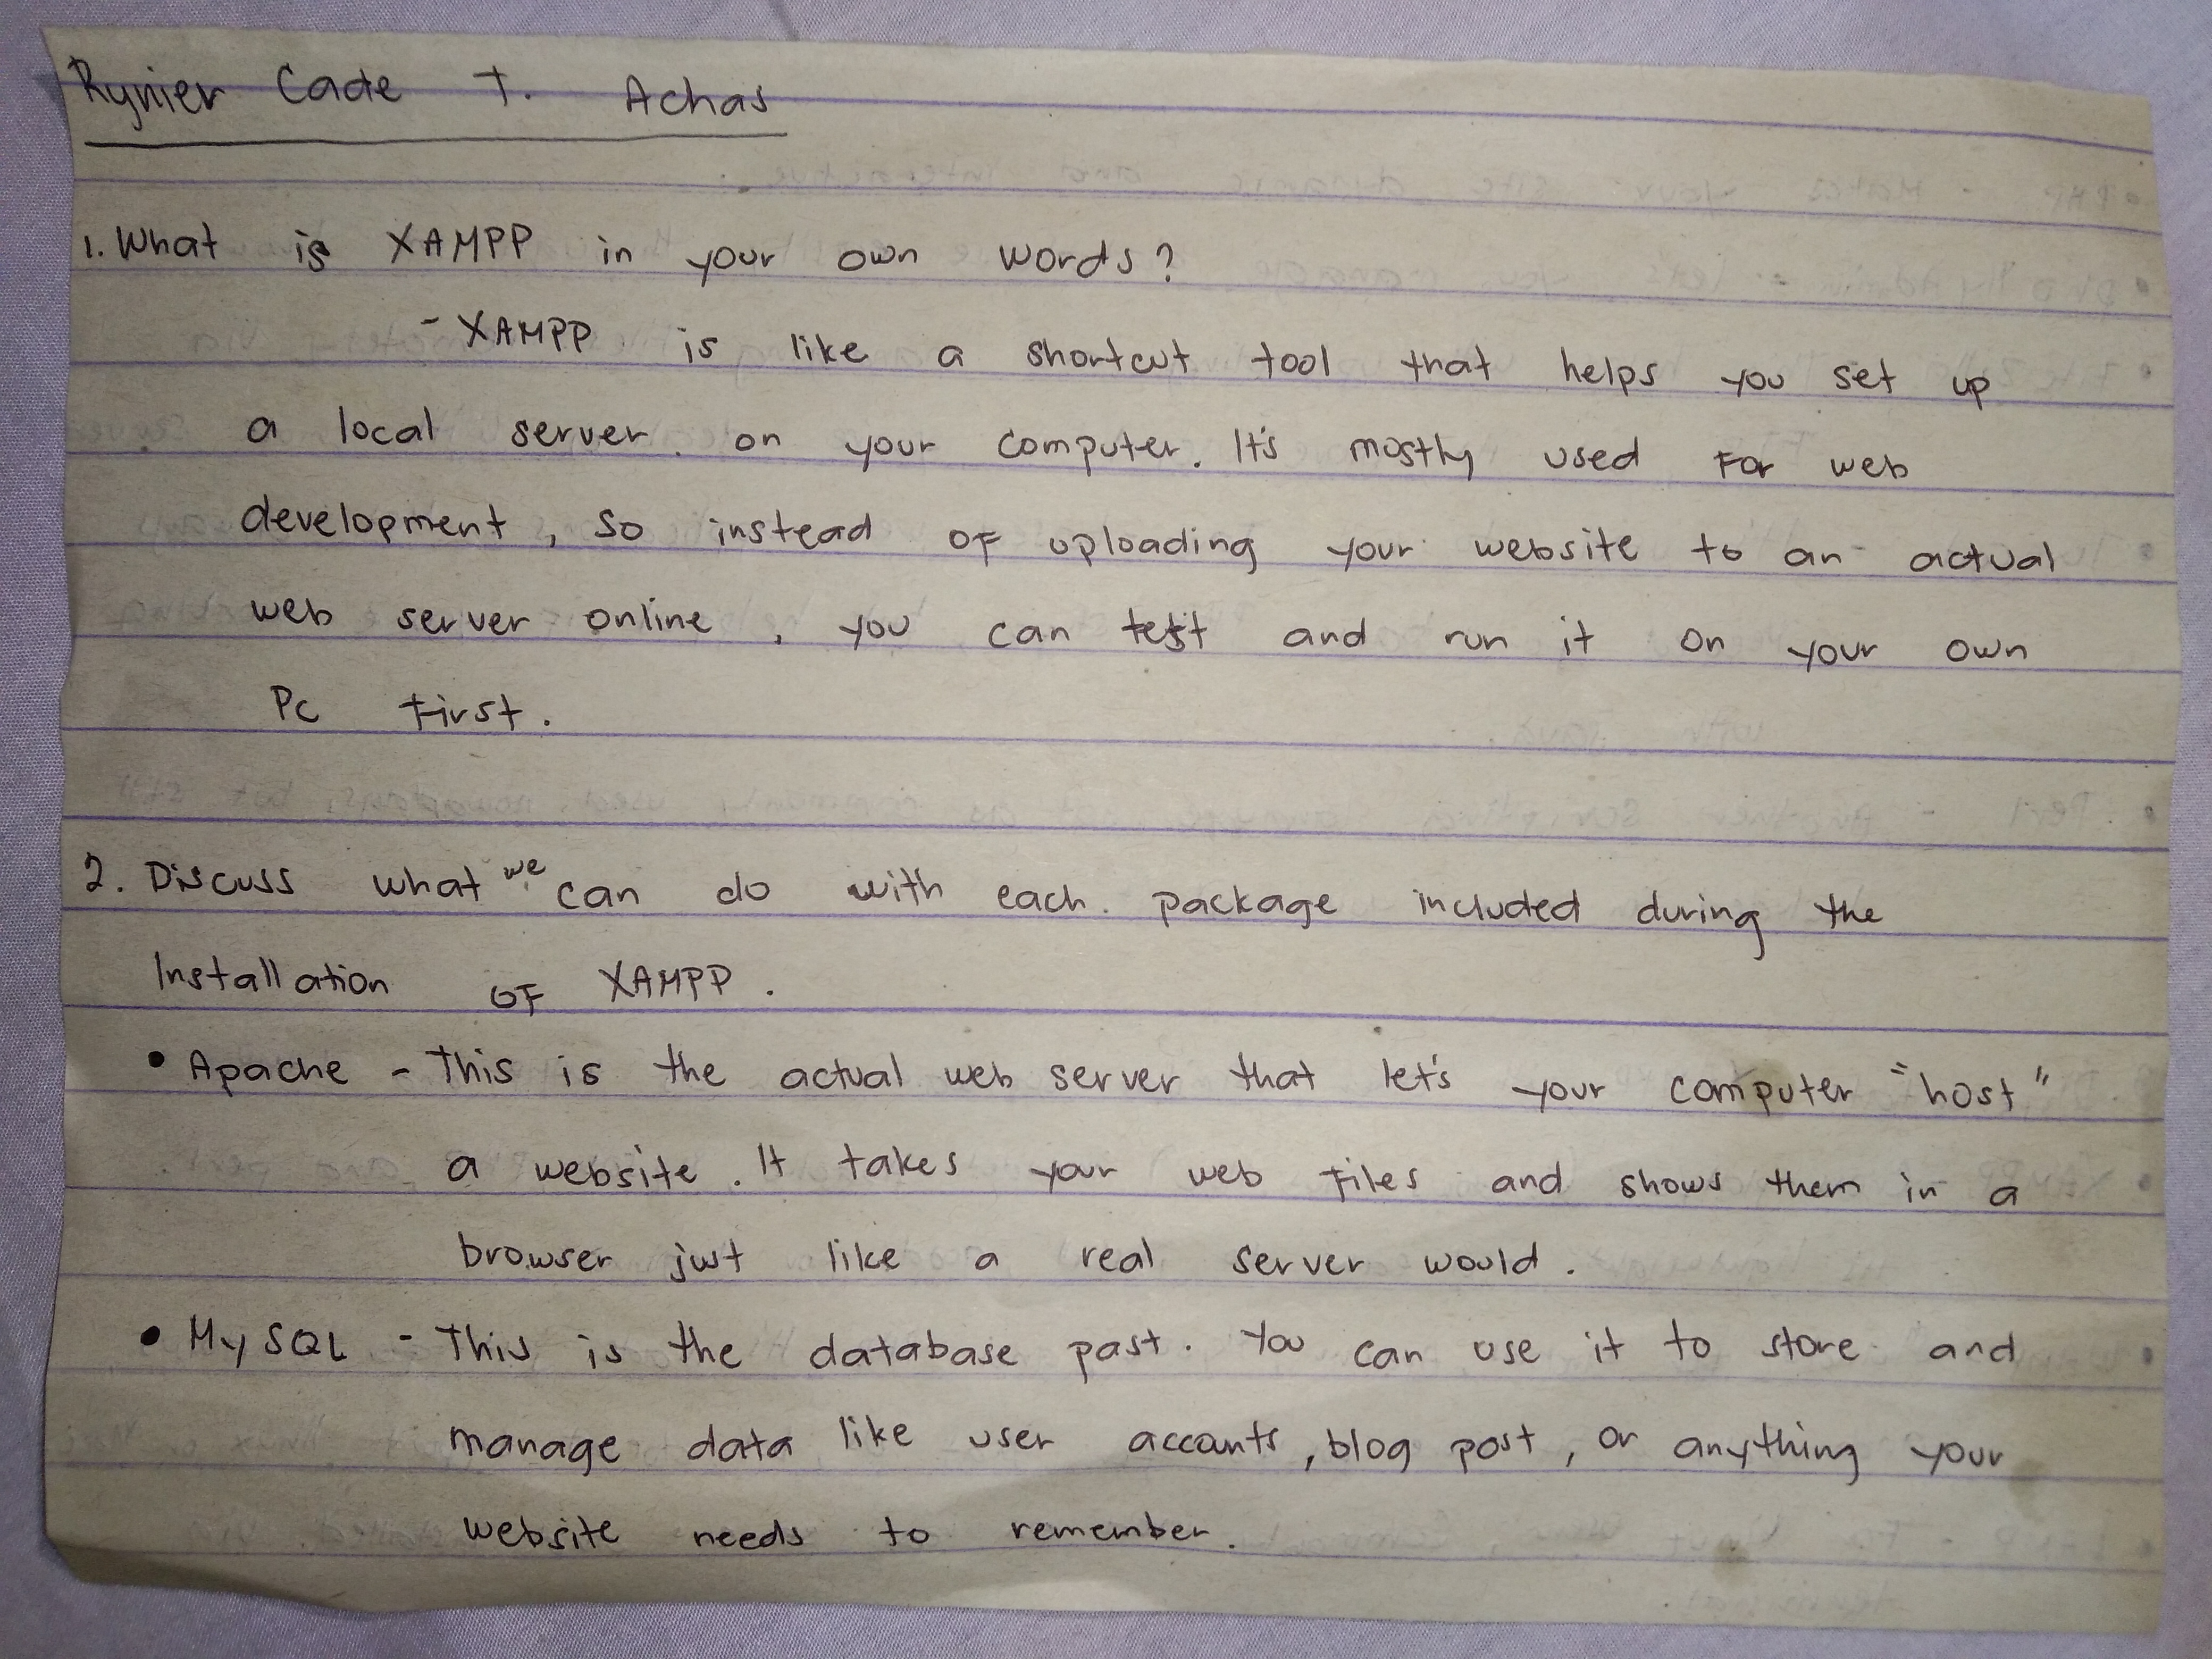 Rynier Cade T. Achas
1. What is XAMPP in your own words?
- XAMPP is like a shortcut tool that helps you set up
a local server on your computer. It's mostly used For web
development, so instead oF uploading your website to an actual
web server online, you can test and run it on your own
Pc First.
2. Discuss what we can do with each package included during the
Installation oF XAMPP.
• Apache - This is the actual web server that let's your computer "host"
a website. It takes your web Files and shows them in a
browser just like a real server would.
• My SQL - This is the database past. You can use it to store and
manage data like user accants, blog post, or anything your
website needs to remember.